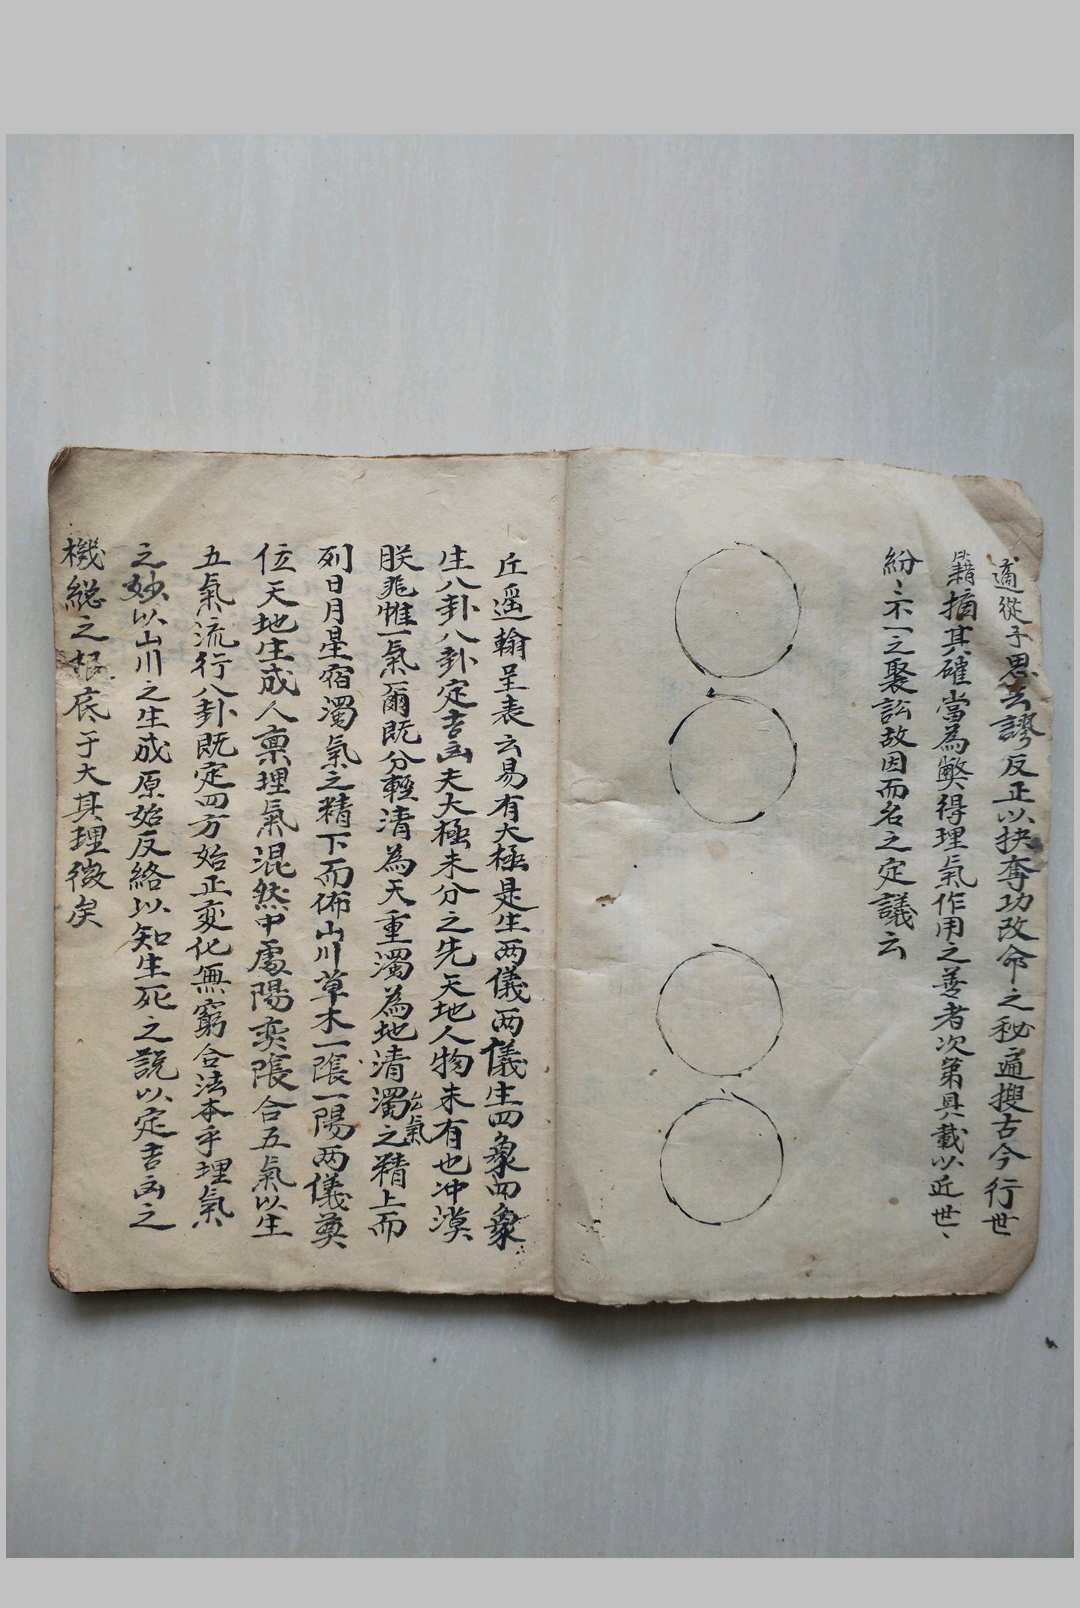 適從予思去謬反正以抉奪功改命之秘遍搜古今行世
籍摘其確當為獘得理氣作用之善者次第具載以近世、
紛〻不一之聚訟故因而名之定議云
丘遥翰呈表云易有大極是生两儀两儀生四象四象
生八卦八卦定吉凶夫大極未分之先天地人物未有也冲漠
朕兆惟一氣爾既分輕清為天重濁為地清濁之精上而
公氣
列日月星宿濁氣之精下而佈山川草木一陰一陽两儀奠
位天地生成人禀理氣混然中處陽奕陰合五氣以生
五氣流行八卦既定四方始正变化無窮合法本乎理氣
之妙以山川之生成原始反絡以知生死之説以定吉凶之
機緃之根底于大其理微矣